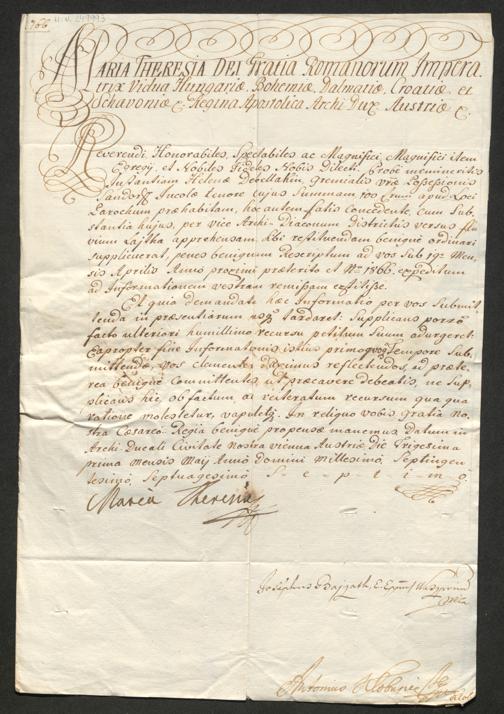 MARIA THERESIA DEI Gratia Romanorum Impera
trix Vidua Hungariæ, Bohemiæ, Dalmatiæ, Croatiæ, et
Schavoniæ &. Regina Apostolica Archi Dux Austriæ &.
Reverendi, Honorabiles, Spectabiles ac Magnifici, Magnifici item
Egregÿ, et Nobiles Fideles Nobis Dilecti. Probè memineritis
Instantiam Helenæ Debellakin, Gremialis vræ Possessionis
Sandorff Incolæ tenore cujus Summam 100 apud Loci
Parochum præhabitam, hoc autem fatis Concedente, cum Sub
stantia hujus, per vice Archi-Diaconum Districtus versus flu
vium Lajtha apprehensam, sibi restituendam benignè ordinari
supplicerat, penes benignum Rescriptum ad vos Sub 19a Men
sis Aprilis Anno proximè præterito et Nro 1866. expeditum
ad Informationem vestram remissam extitisse.
Et quia demandata hæc Informatio per vos Submit
tenda in præsentiarum tardaret; Supplicans porrò
facto ulteriori humillimo recursu petitum suum adurgeret:
Eapropter fine Informationis istius primoquoque Tempore Sub
mittendæ, vos clementer duximus reflectendos, id præte
rea benignè Committentes, ut præcavere debeatis, ne Sup
plicans hic ob factum, ac reiteratum recursum qua qua
ratione molestetur, vapuletq. In reliquo vobis Gratia No
stra Cæsareo-Regia benignè propensæ manemus. Datum in
Archi-Ducali Civitate nostra Vienna Austriæ, Die Trigesima
prima Mensis Maÿ Annô Domini Millesimô, Septingen
tesimô, Septuagesimô S-e-p-t-i-m-o.
Maria Theresia
Josephus Bajzath, E. Eppus
Antonius Klobusiczkÿ